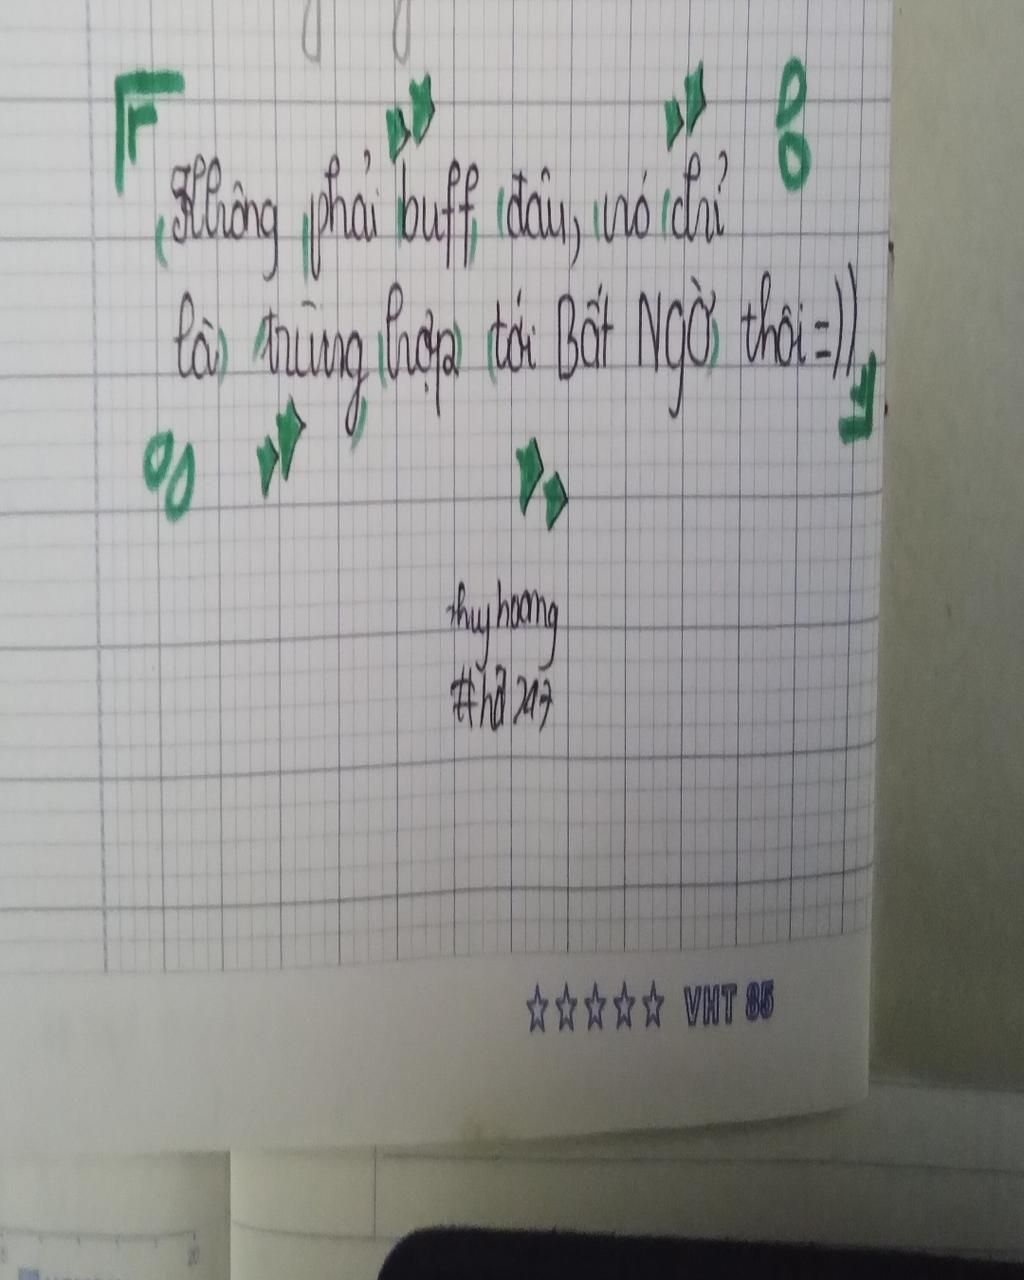 Không phải buff đâu, nó chỉ
là trùng hợp tới Bất Ngờ thôi =))
thuy hoong
☆☆☆☆☆ VHT 85